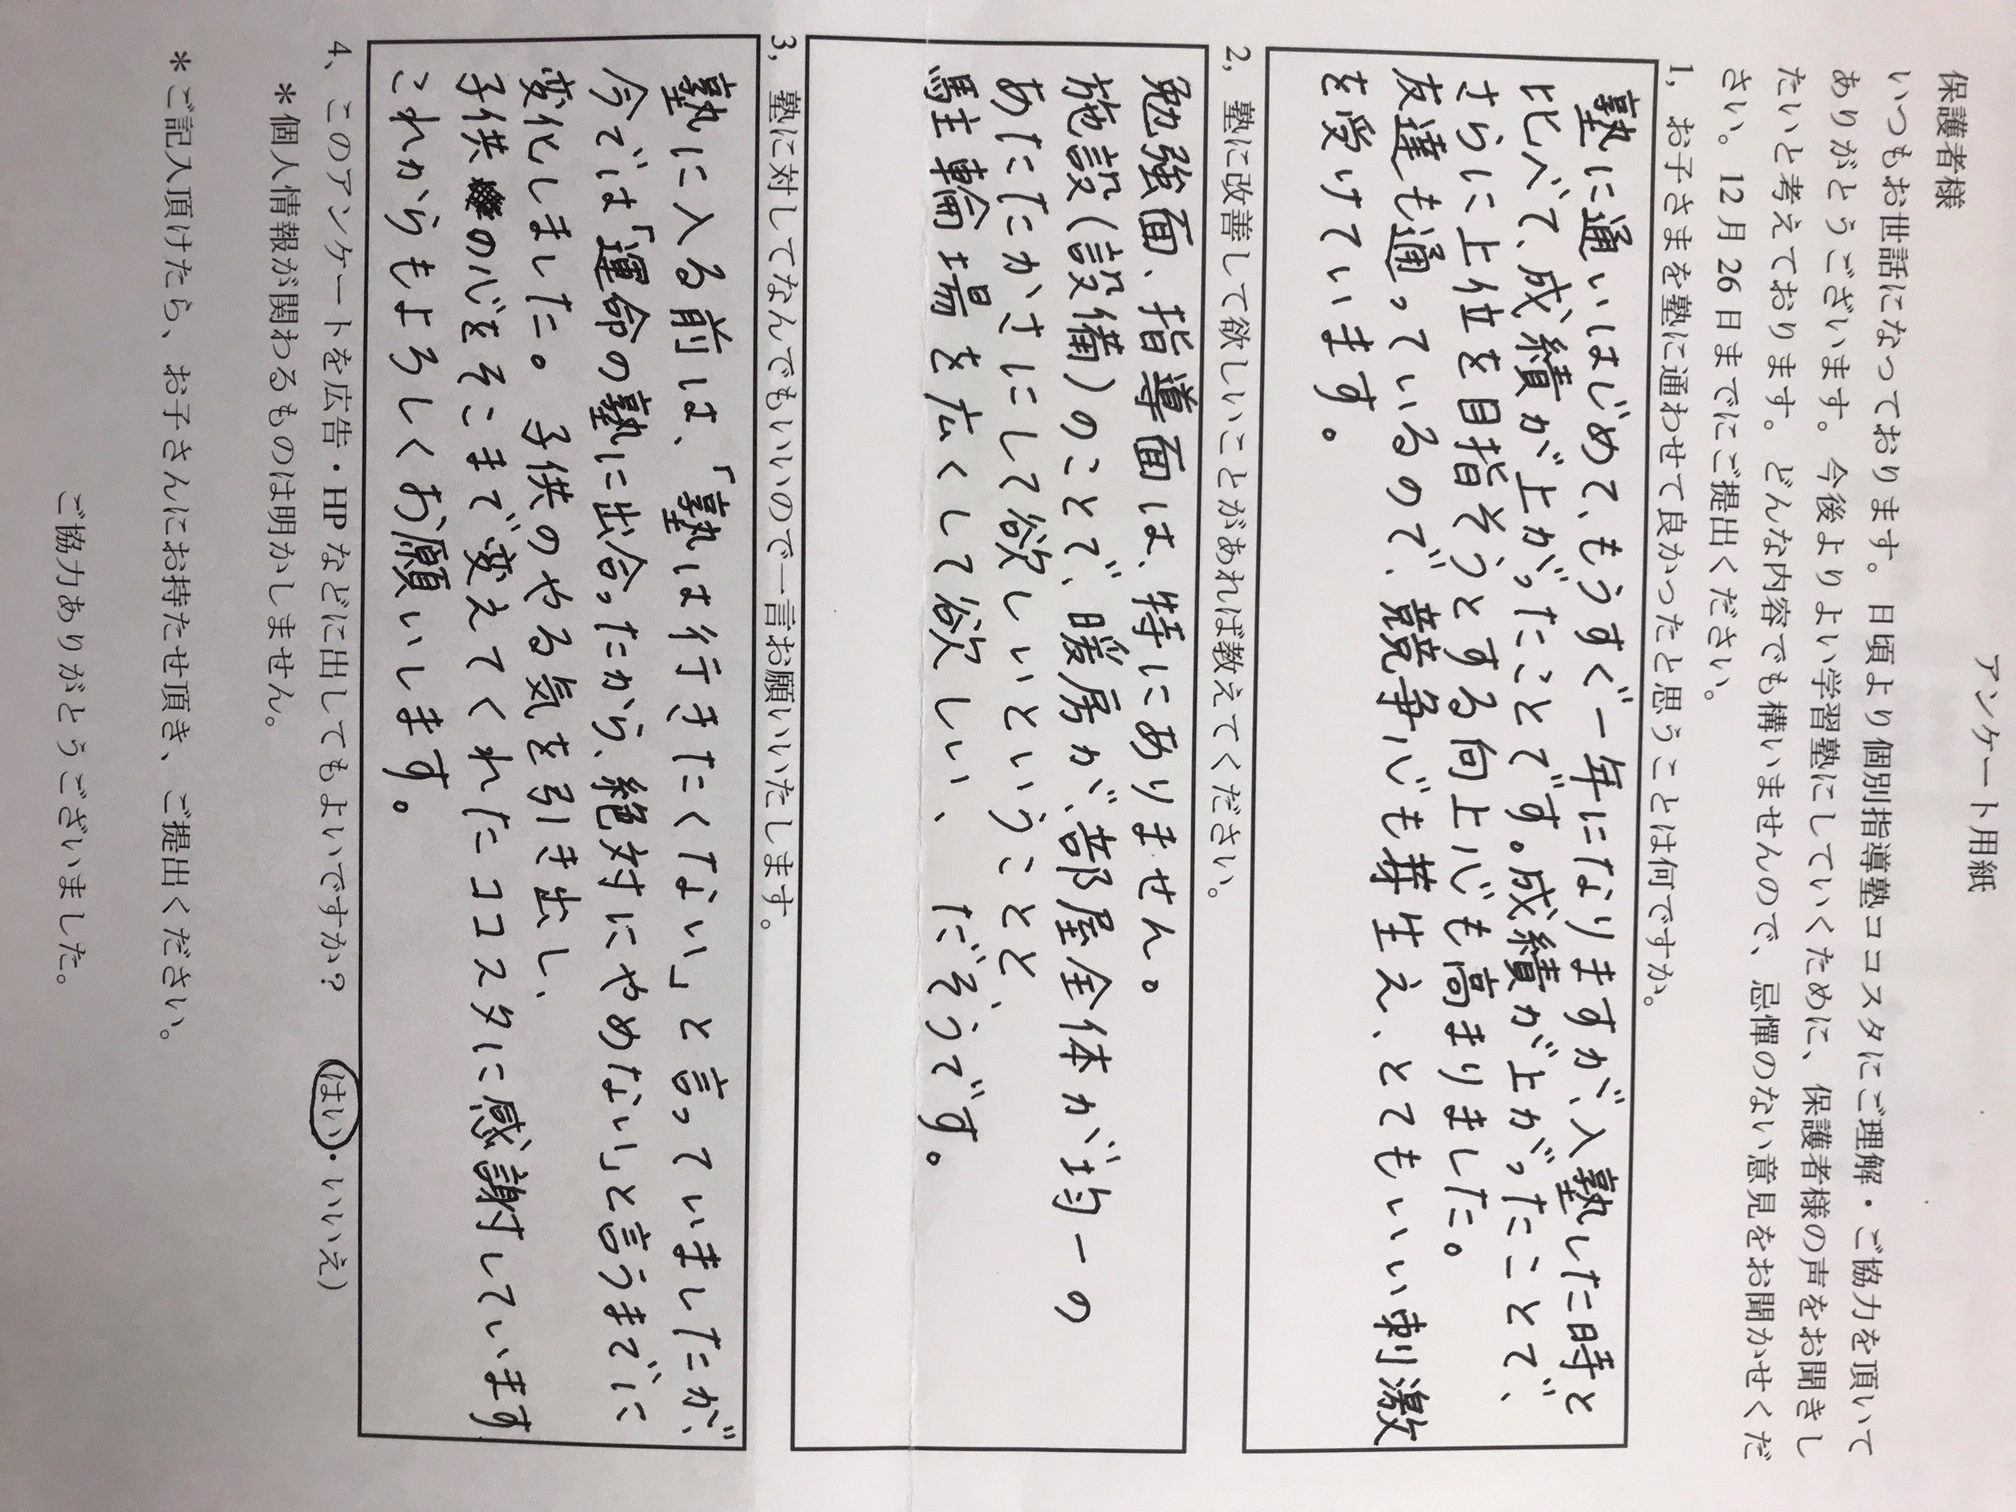 アンケート用紙
保護者様
いつもお世話になっております。日頃より個別指導塾ココスタにご理解・ご協力を頂いて
ありがとうございます。今後よりよい学習塾にしていくために、保護者様の声をお聞きし
たいと考えております。どんな内容でも構いませんので、忌憚のない意見をお聞かせくだ
さい。12月26日までにご提出ください。
1, お子さまを塾に通わせて良かったと思うことは何ですか。
塾に通いはじめて、もうすぐ一年になりますが、入塾した時と
比べて、成績が上がったことです。成績が上がったことで、
さらに上位を目指そうとする向上心も高まりました。
友達も通っているので、競争心も芽生え、とてもいい刺激
を受けています。
2, 塾に改善して欲しいことがあれば教えてください。
勉強面、指導面は、特にありません。
施設(設備)のことで、暖房が、部屋全体が均一の
あたたかさにして欲しいということと、
駐輪場を広くして欲しい、だそうです。
3, 塾に対してなんでもいいので一言お願いいたします。
塾に入る前は、「塾は行きたくない」と言っていましたが、
今では「運命の塾に出合ったから、絶対にやめない」と言うまでに
変化しました。子供のやる気を引き出し、
子供の心をそこまで変えてくれたココスタに感謝しています
これからもよろしくお願いします。
4、このアンケートを広告・HPなどに出してもよいですか? はい・いいえ）
＊個人情報が関わるものは明かしません。
＊ご記入頂けたら、お子さんにお持たせ頂き、ご提出ください。
ご協力ありがとうございました。